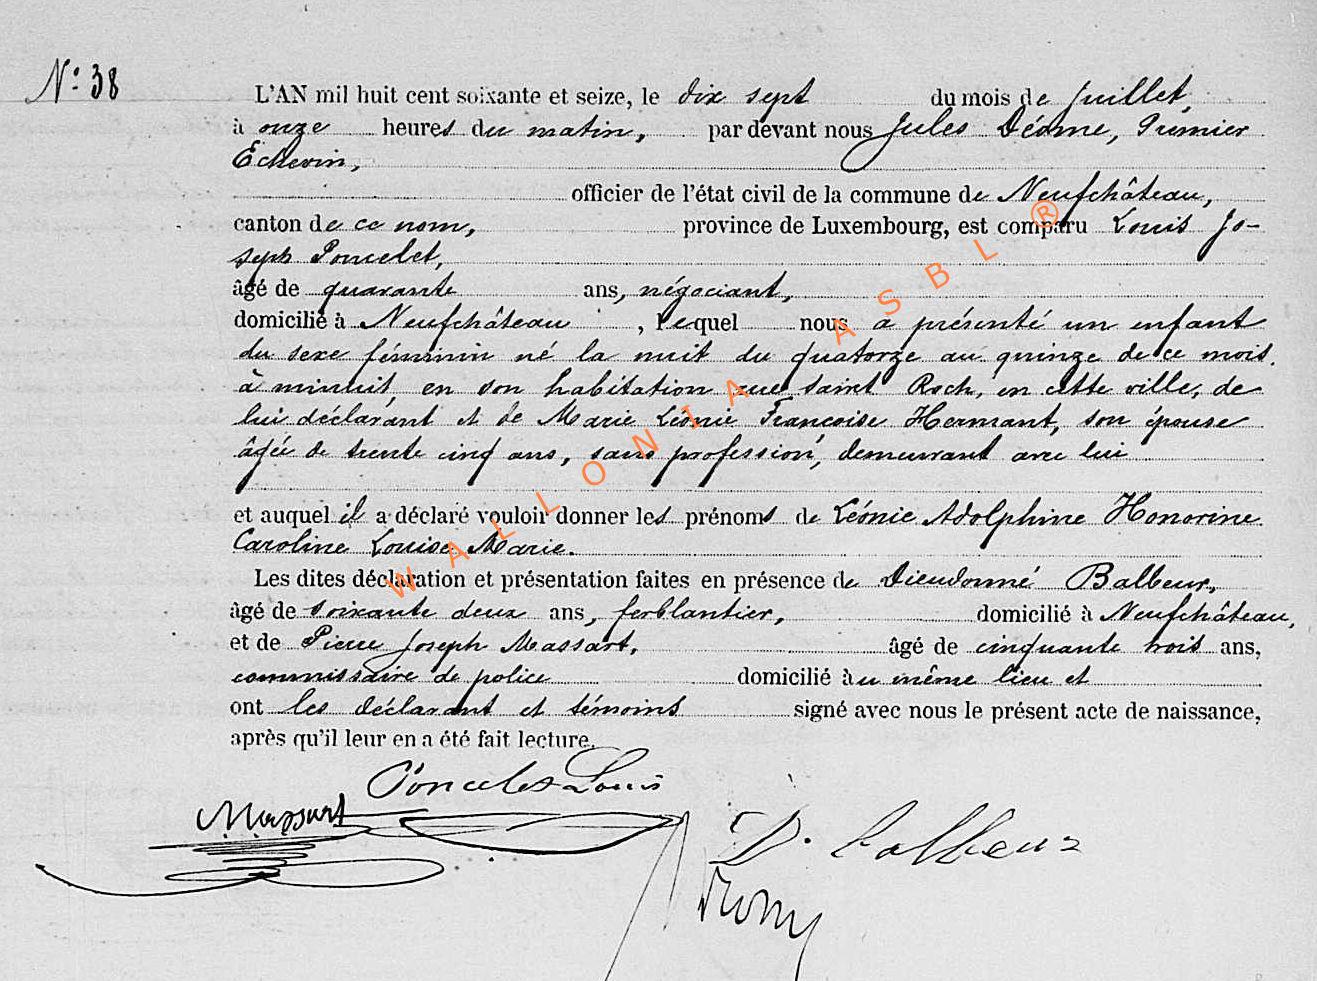 N° 38
L'AN mil huit cent soixante et seize, le dix sept du mois de juillet,
à onze heures du matin, par devant nous Jules Déome, Premier
Echevin,
officier de l'état civil de la commune de Neufchâteau,
canton de ce nom, province de Luxembourg, est comparu Louis Jo-
seph Poncelet,
âgé de quarante ans, négociant,
domicilié à Neufchâteau, lequel nous a présenté un enfant
du sexe féminin né la nuit du quatorze au quinze de ce mois,
à minuit, en son habitation rue Saint Roch, en cette ville, de
lui déclarant et de Marie Léonie Françoise Hermant, son épouse
âgée de trente cinq ans, sans profession, demeurant avec lui
et auquel il a déclaré vouloir donner les prénoms de Léonie Adolphine Honorine
Caroline Louise Marie.
Les dites déclaration et présentation faites en présence de Dieudonné Balbeur,
âgé de soixante deux ans, ferblantier, domicilié à Neufchâteau,
et de Pierre Joseph Massart, âgé de cinquante trois ans,
commissaire de police domicilié au même lieu et
ont les déclarant et témoins signé avec nous le présent acte de naissance,
après qu'il leur en a été fait lecture.
Poncelet Louis
Massart
D. Balbeur
WALLONIA ASBL ®